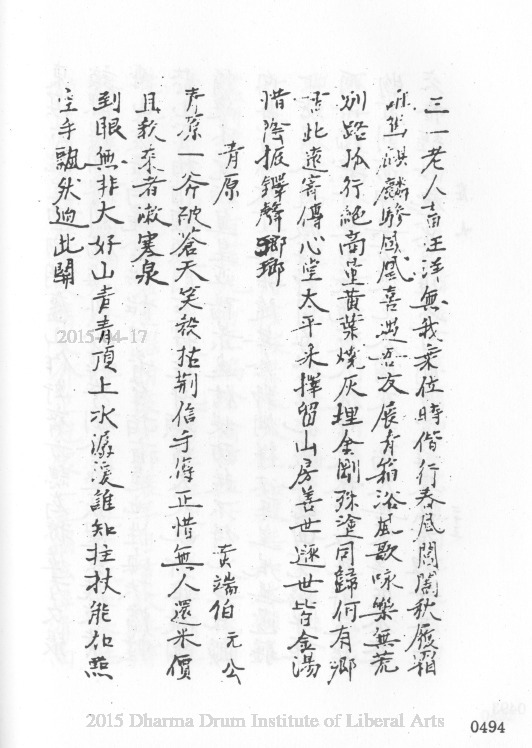 三一老人言汪洋無我乘位時偕行春風闔闢秋履霜
麒麟驂鳳凰喜遇吾友展青箱浴風歌咏樂無荒
別路孤行絕高量黃葉燒灰埋金剛殊塗同歸何有鄉
書此遠寄傳心堂太平采擇留山房善世遯世皆金湯
惜陰振鐸聲瑯瑯
青原
黃端伯元公
青原一斧破蒼天笑殺拈荊信手
正惜無人還米價
且教來者漱寒泉
到眼無非大好山青青頂上水潺湲誰知拄杖能
空手飄然過此關
2015-04-17
2015 Dharma Drum Institute of Liberal Arts
0494